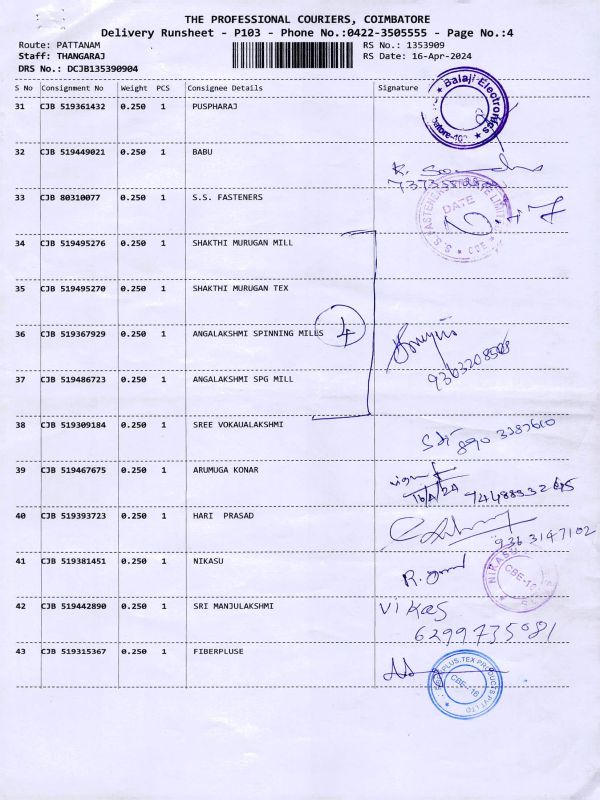 THE PROFESSIONAL COURIERS, COIMBATORE
Delivery Runsheet - P103 - Phone No.:0422-3505555 - Page No.:4
Route: PATTANAM RS No.: 1353909
Staff: THANGARAJ RS Date: 16-Apr-2024
DRS No.: DCJB135390904
S No Consignment No Weight PCS Consignee Details Signature
31 CJB 519361432 0.250 1 PUSPHARAJ
Balaji Electronics
32 CJB 519449021 0.250 1 BABU
33 CJB 80310077 0.250 1 S.S. FASTENERS
DATE
CBE
34 CJB 519495276 0.250 1 SHAKTHI MURUGAN MILL
35 CJB 519495270 0.250 1 SHAKTHI MURUGAN TEX
36 CJB 519367929 0.250 1 ANGALAKSHMI SPINNING MILLS 4
37 CJB 519486723 0.250 1 ANGALAKSHMI SPG MILL
38 CJB 519309184 0.250 1 SREE VOKAUALAKSHMI
39 CJB 519467675 0.250 1 ARUMUGA KONAR
16/4/24
40 CJB 519393723 0.250 1 HARI PRASAD
9363147102
41 CJB 519381451 0.250 1 NIKASU
NIKASU
42 CJB 519442890 0.250 1 SRI MANJULAKSHMI Vikas
6299735081
43 CJB 519315367 0.250 1 FIBERPLUSE
CBE-16